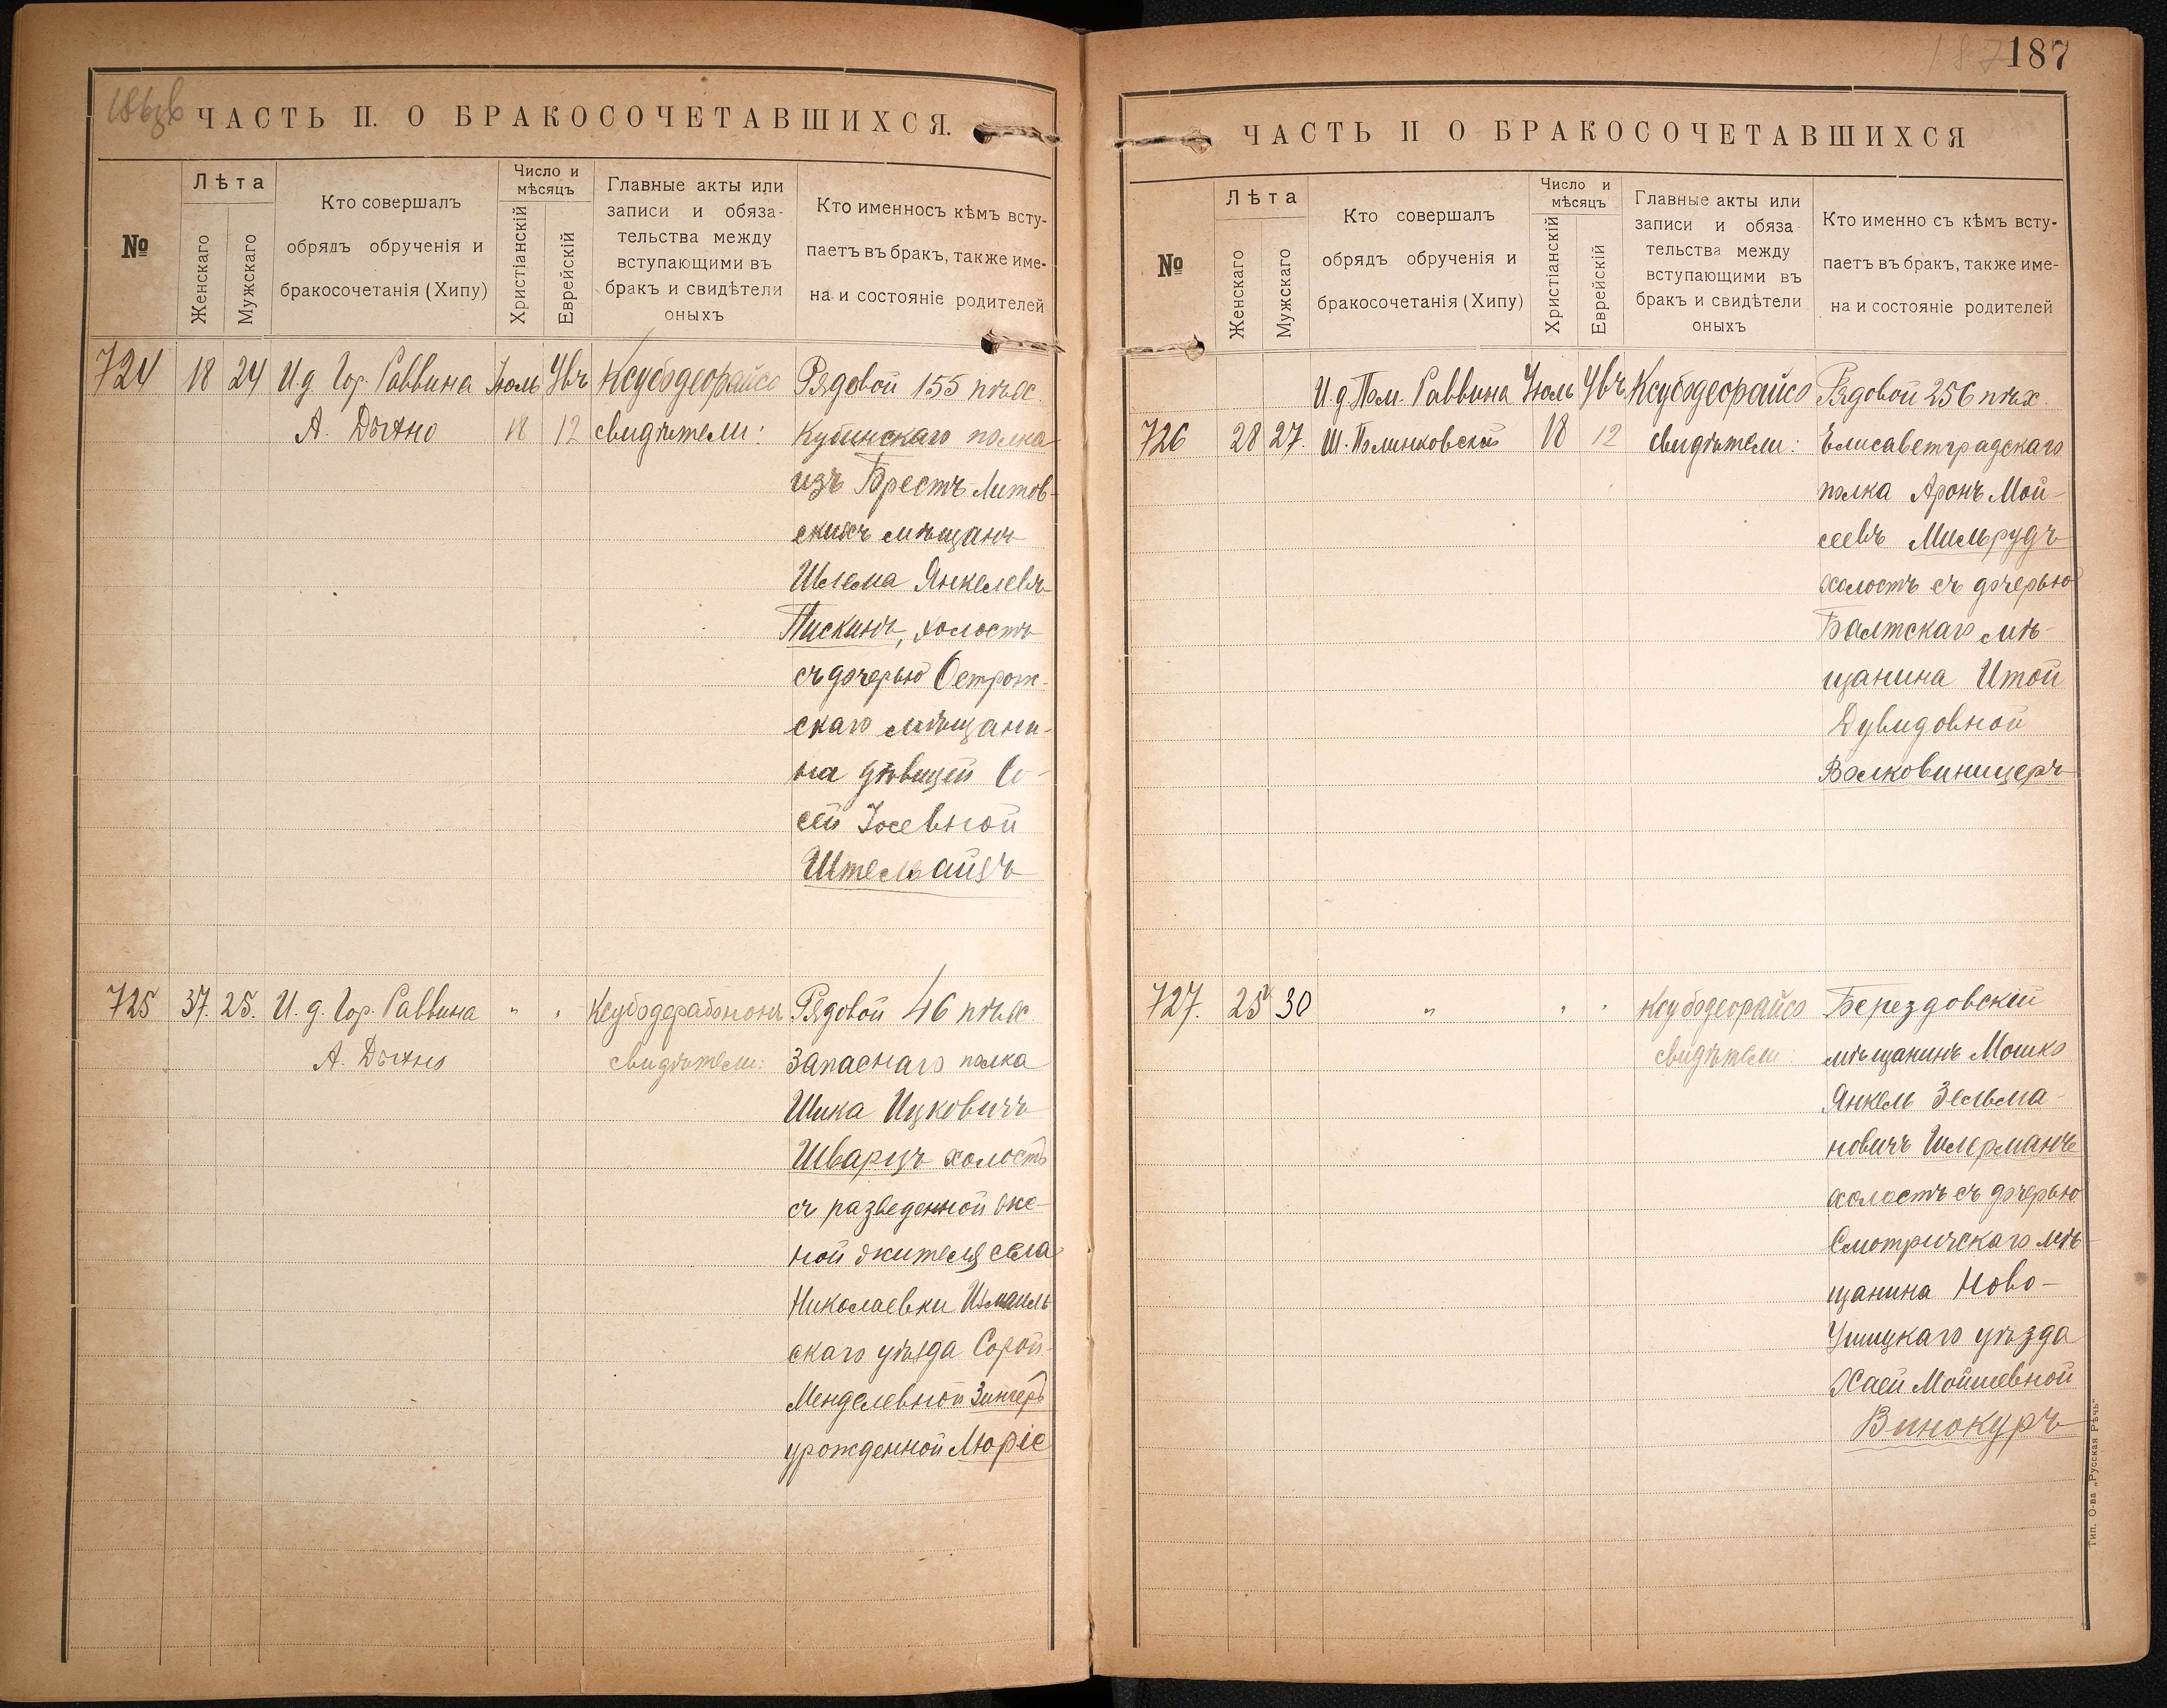 186об
ЧАСТЬ II. О БРАКОСОЧЕТАВШИХСЯ.
№
Лѣта
Женскаго
Мужскаго
Кто совершалъ
обрядъ обрученія и
бракосочетанія (Хипу)
Число и
мѣсяцъ
Христіанскій
Еврейскій
Главные акты или
записи и обяза-
тельства между
вступающими въ
бракъ и свидѣтели
оныхъ
Кто именносъ кѣмъ всту-
паетъ въ бракъ, также име-
на и состояніе родителей
724 18 24 И.д. Гор. Раввина Іюль Увъ Ксубодеорайсо Рядовой 155 пѣх.
А. Дыхно 18 12 свидѣтели: Кубинскаго полка
изъ Брестъ-Литов-
скихъ мѣщанъ
Шлема Янкелевъ
Пискинъ, холостъ
съ дочерью Острож-
скаго мѣщани-
на дѣвицей Со-
сей Іосевной
Штельайзъ
725 37. 25. И. д. Гор. Раввина " " Ксубодерабононъ Рядовой 46 пѣх.
А. Дыхно свидѣтели: запаснаго полка
Шика Ицковичъ
Шварцъ холостъ
съ разведенной же-
ной жителя села
Николаевки Измаиль
скаго уѣзда Сорой
Менделевной Зингеръ
урожденной Люріе
187
187
ЧАСТЬ II О БРАКОСОЧЕТАВШИХСЯ
№
Лѣта
Женскаго
Мужскаго
Кто совершалъ
обрядъ обрученія и
бракосочетанія (Хипу)
Число и
мѣсяцъ
Христіанскій
Еврейскій
Главные акты или
записи и обяза-
тельства между
вступающими въ
бракъ и свидѣтели
оныхъ
Кто именно съ кѣмъ всту-
паетъ въ бракъ, также име-
на и состояніе родителей
И.д. Пом. Раввина Іюль Увъ Ксубодеорайсо Рядовой 256 пѣх.
726 28 27. Ш. Полинковскій 18 12 свидѣтели: Елисаветградскаго
полка Аронъ Мой-
сеевъ Мильрудъ
холостъ съ дочерью
Балтскаго мѣ-
щанина Итой
Дувидовной
Волковиницеръ
727. 25 30 " " " Ксубодеорайсо Берездовскій
свидѣтели: мѣщанинъ Мошко
Янкель Зельма-
новичъ Шлерманъ
холостъ съ дочерью
Смотричскаго мѣ-
щанина Ново-
Ушицкаго уѣзда
Хаей Мойшевной
Винокуръ
Тип. О-ва „Русская Рѣчь"